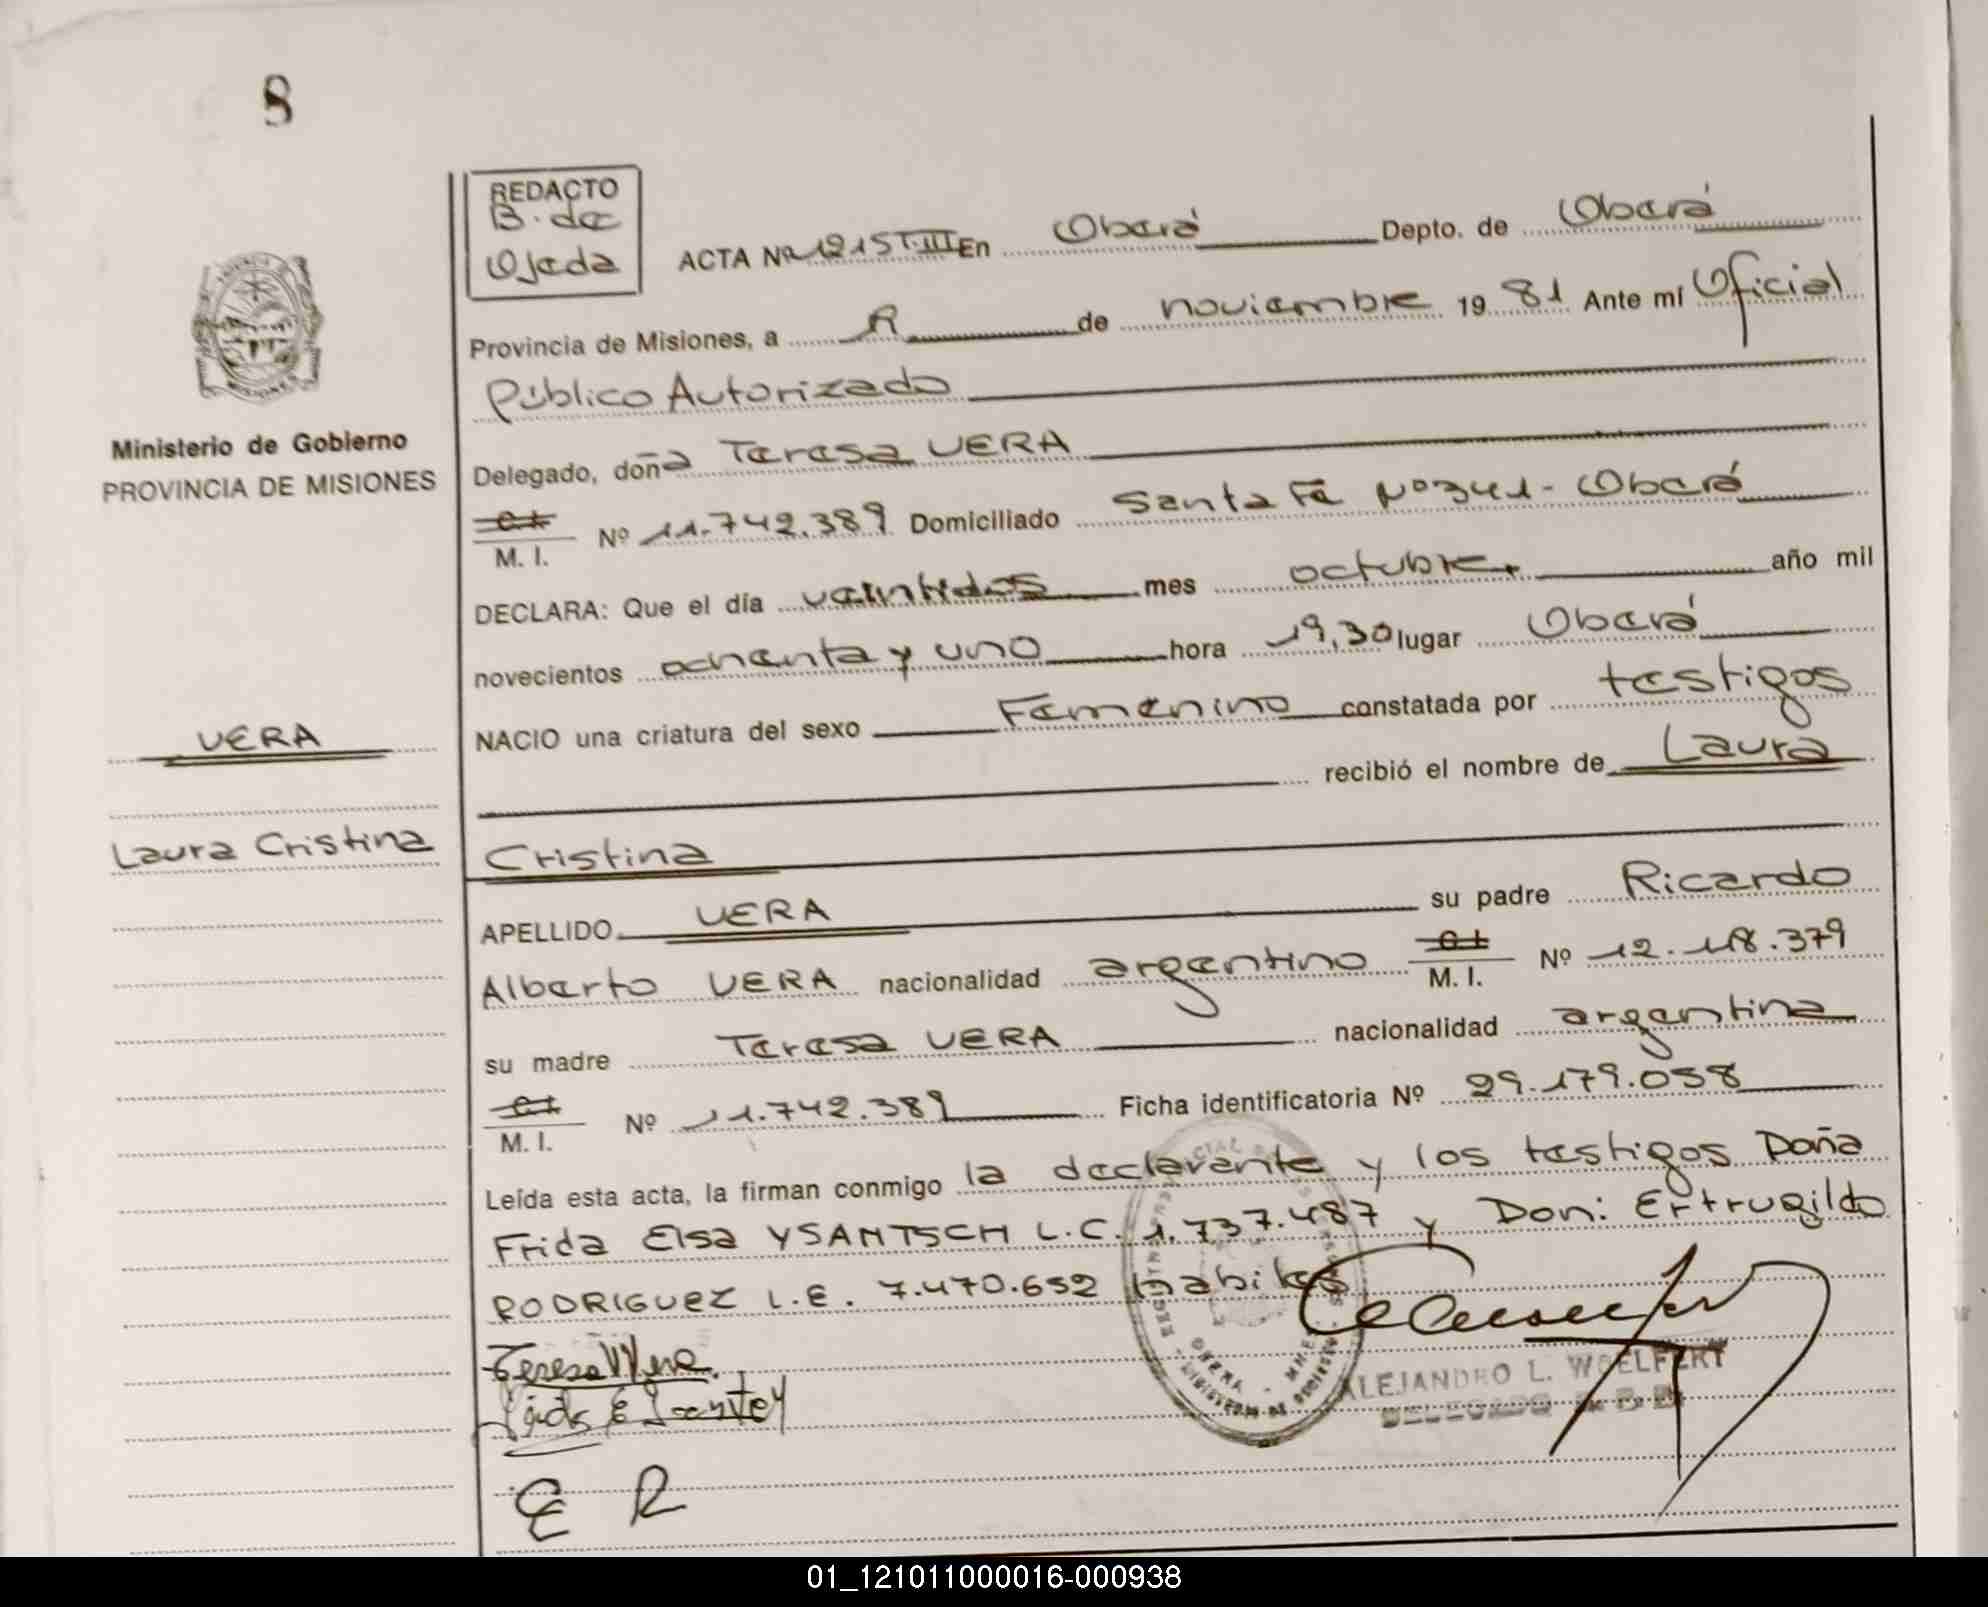 8
REDACTO
B. de
Ojeda
ACTA Nº 1215 T.III En Oberá Depto. de Oberá
Provincia de Misiones, a de noviembre 19 81 Ante mí Oficial
Público Autorizado
Ministerio de Gobierno
PROVINCIA DE MISIONES
Delegado, doña Teresa VERA
M. I. Nº 11.742.389 Domiciliado Santa Fe Nº 341 - Oberá
DECLARA: Que el día veintidos mes octubre año mil
novecientos ochenta y uno hora 19,30 lugar Oberá
NACIO una criatura del sexo Femenino constatada por testigos
VERA
recibió el nombre de Laura
Laura Cristina
Cristina
APELLIDO VERA su padre Ricardo
Alberto VERA nacionalidad argentino M. I. Nº 12.118.379
su madre Teresa VERA nacionalidad argentina
M. I. Nº 11.742.389 Ficha identificatoria Nº 29.179.058
Leída esta acta, la firman conmigo la declarante y los testigos Doña
Frida Elsa YSANTSCH L.C. 1.737.487 y Don: Ertrugildo
RODRIGUEZ L.E. 7.470.652 habiles
Teresa Vera
ALEJANDRO L. WOELFERT
DELEGADO
E R
01_121011000016-000938